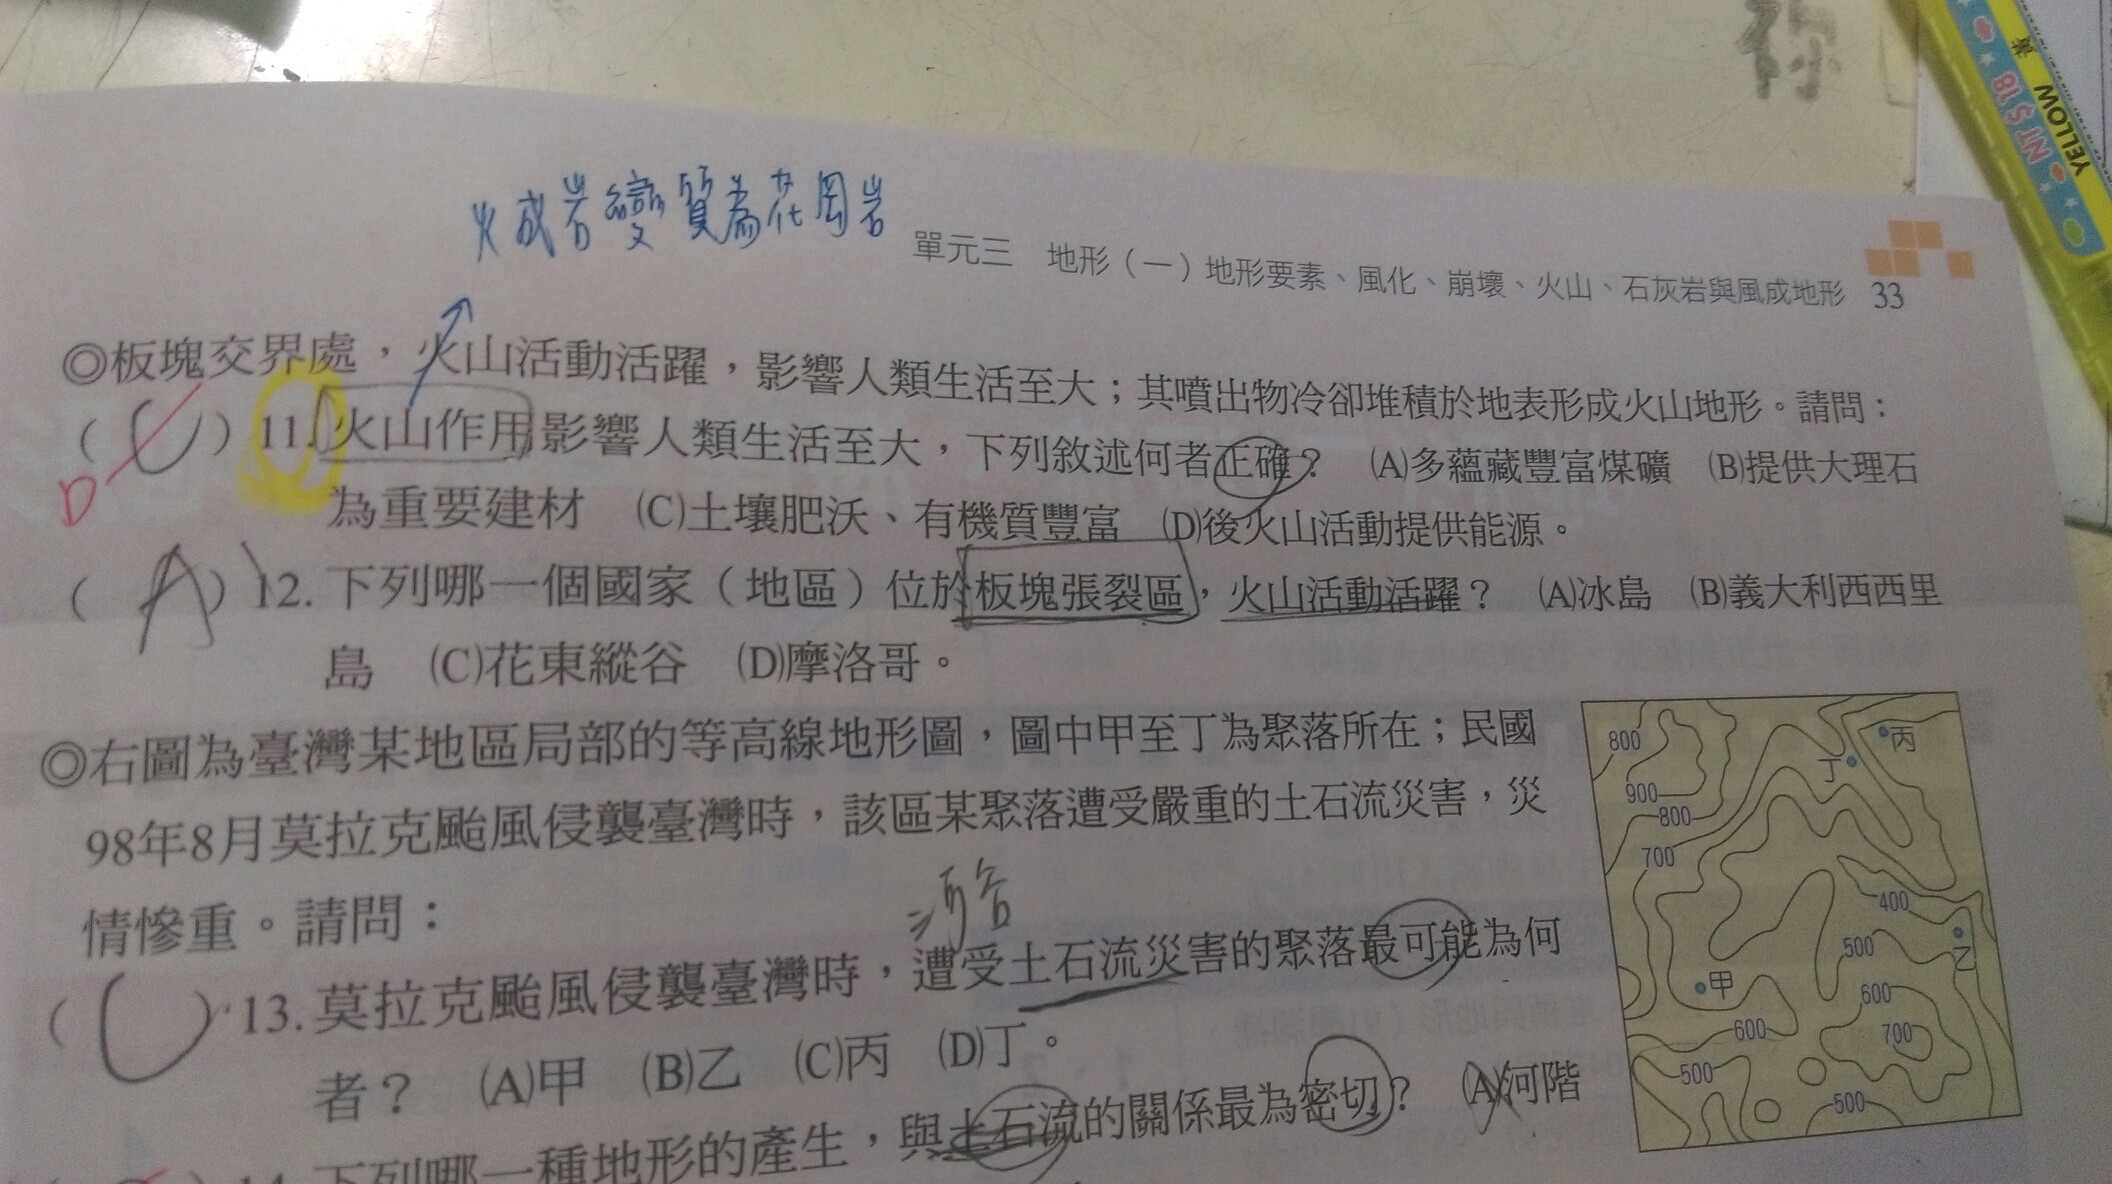 祢
YELLOW
NT$18
火成岩變質為花岡岩
單元三 地形（一）地形要素、風化、崩壞、火山、石灰岩與風成地形 33
◎板塊交界處，火山活動活躍，影響人類生活至大；其噴出物冷卻堆積於地表形成火山地形。請問：
D
( C ) 11. 火山作用影響人類生活至大，下列敘述何者正確？ (A)多蘊藏豐富煤礦 (B)提供大理石
為重要建材 (C)土壤肥沃、有機質豐富 (D)後火山活動提供能源。
( A ) 12. 下列哪一個國家（地區）位於板塊張裂區，火山活動活躍？ (A)冰島 (B)義大利西西里
島 (C)花東縱谷 (D)摩洛哥。
◎右圖為臺灣某地區局部的等高線地形圖，圖中甲至丁為聚落所在；民國
98年8月莫拉克颱風侵襲臺灣時，該區某聚落遭受嚴重的土石流災害，災
情慘重。請問：
河谷
( C ) 13. 莫拉克颱風侵襲臺灣時，遭受土石流災害的聚落最可能為何
者？ (A)甲 (B)乙 (C)丙 (D)丁。
14. 下列哪一種地形的產生，與土石流的關係最為密切？ (A)河階
800
丙
丁
900
800
700
400
500
乙
甲
600
600
700
500
500